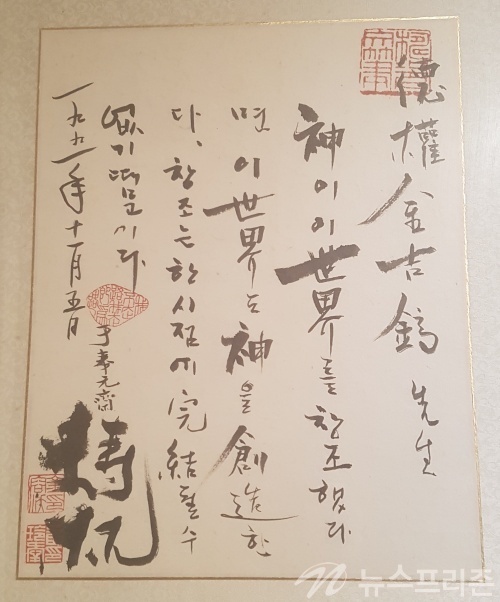 德權金吉鎬 先生
神이 이 世界를 창조했다
면 이 世界도 神을 創造한
다. 창조는 한 시점에 完結될 수
없기 때문이다.
一九九一年十一月五日
于奉元齋
檮杌
뉴스프리즌